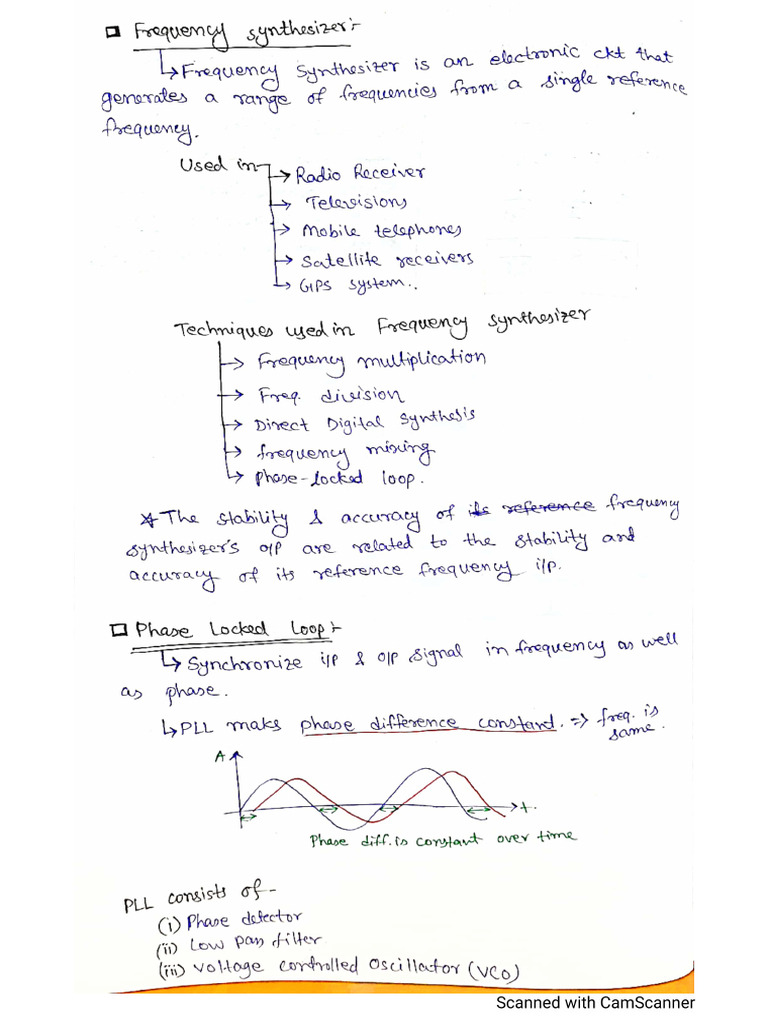 Frequency synthesizer:-
Frequency Synthesizer is an electronic ckt that
generates a range of frequencies from a single reference
frequency.
Used in
Radio Receiver
Televisions
Mobile telephones
Satellite receivers
GPS system..
Techniques used in Frequency synthesizer
Frequency multiplication
Freq. division
Direct Digital Synthesis
frequency mixing
Phase-locked loop.
* The stability & accuracy of its reference frequency
synthesizer's o/p are related to the stability and
accuracy of its reference frequency i/p.
Phase Locked Loop:-
Synchronize i/p & o/p signal in frequency as well
as phase.
PLL maks phase difference constant. => freq. is
same.
A
t.
Phase diff. is constant over time
PLL consists of-
(i) Phase detector
(ii) Low pass filter
(iii) Voltage controlled Oscillator (VCO)
Scanned with CamScanner